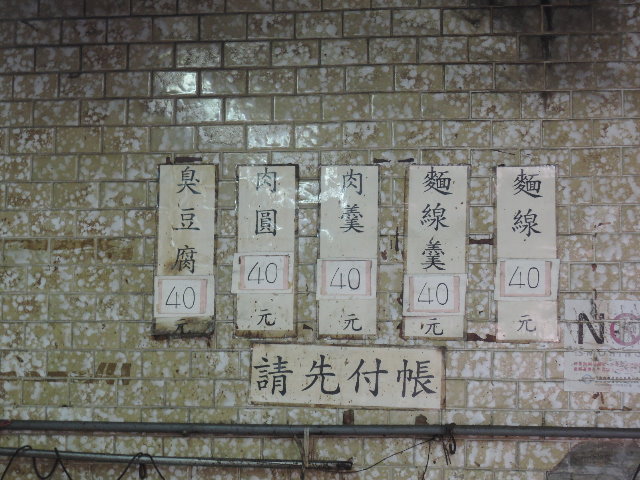 臭豆腐 40 元
肉圓 40 元
肉羹 40 元
麵線羹 40 元
麵線 40 元
請先付帳
N